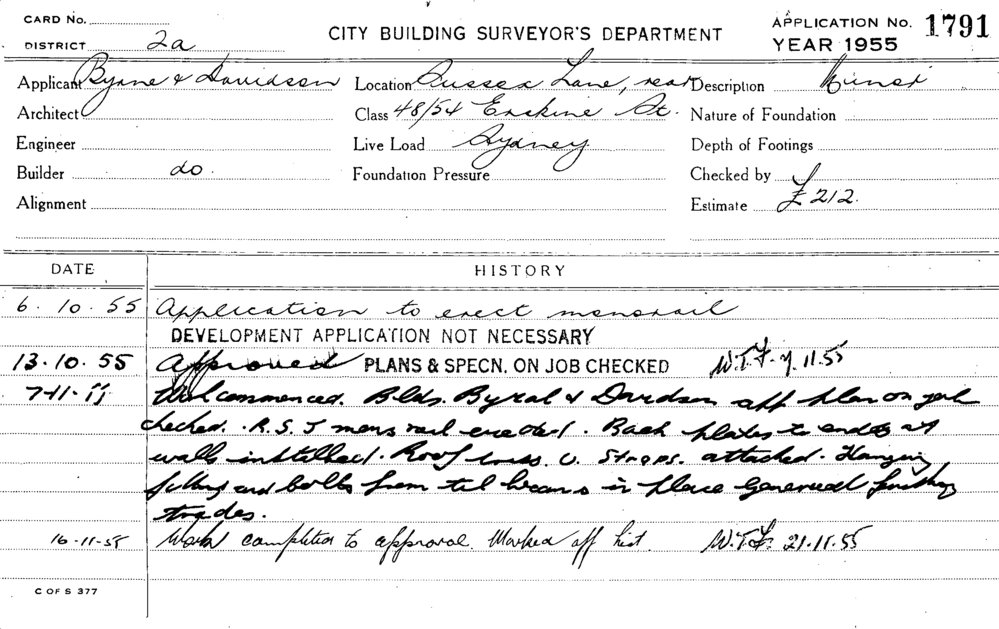 CARD No.
DISTRICT 2a
CITY BUILDING SURVEYOR'S DEPARTMENT
APPLICATION No. 1791
YEAR 1955
Applicant Byrne & Davidson Location Sussex Lane, rear Description
Architect Class 48/54 Erskine St. Nature of Foundation
Engineer Live Load Sydney Depth of Footings
Builder do. Foundation Pressure Checked by
Alignment Estimate £212.
DATE HISTORY
6. 10. 55 Application to erect monorail
DEVELOPMENT APPLICATION NOT NECESSARY
13. 10. 55 Approved PLANS & SPECN. ON JOB CHECKED W.T.F. 7.11.55
7-11-55 Work commenced. Blds. & app plan on job
checked. R.S.J mono rail erected. Back plates to ends at
walls installed. Roof truss U. Straps. attached. Hanging
and bolts from in place General finishing
trades.
16-11-55 Work completed to approval. Marked off list. W.T.F. 21.11.55
C OF S 377